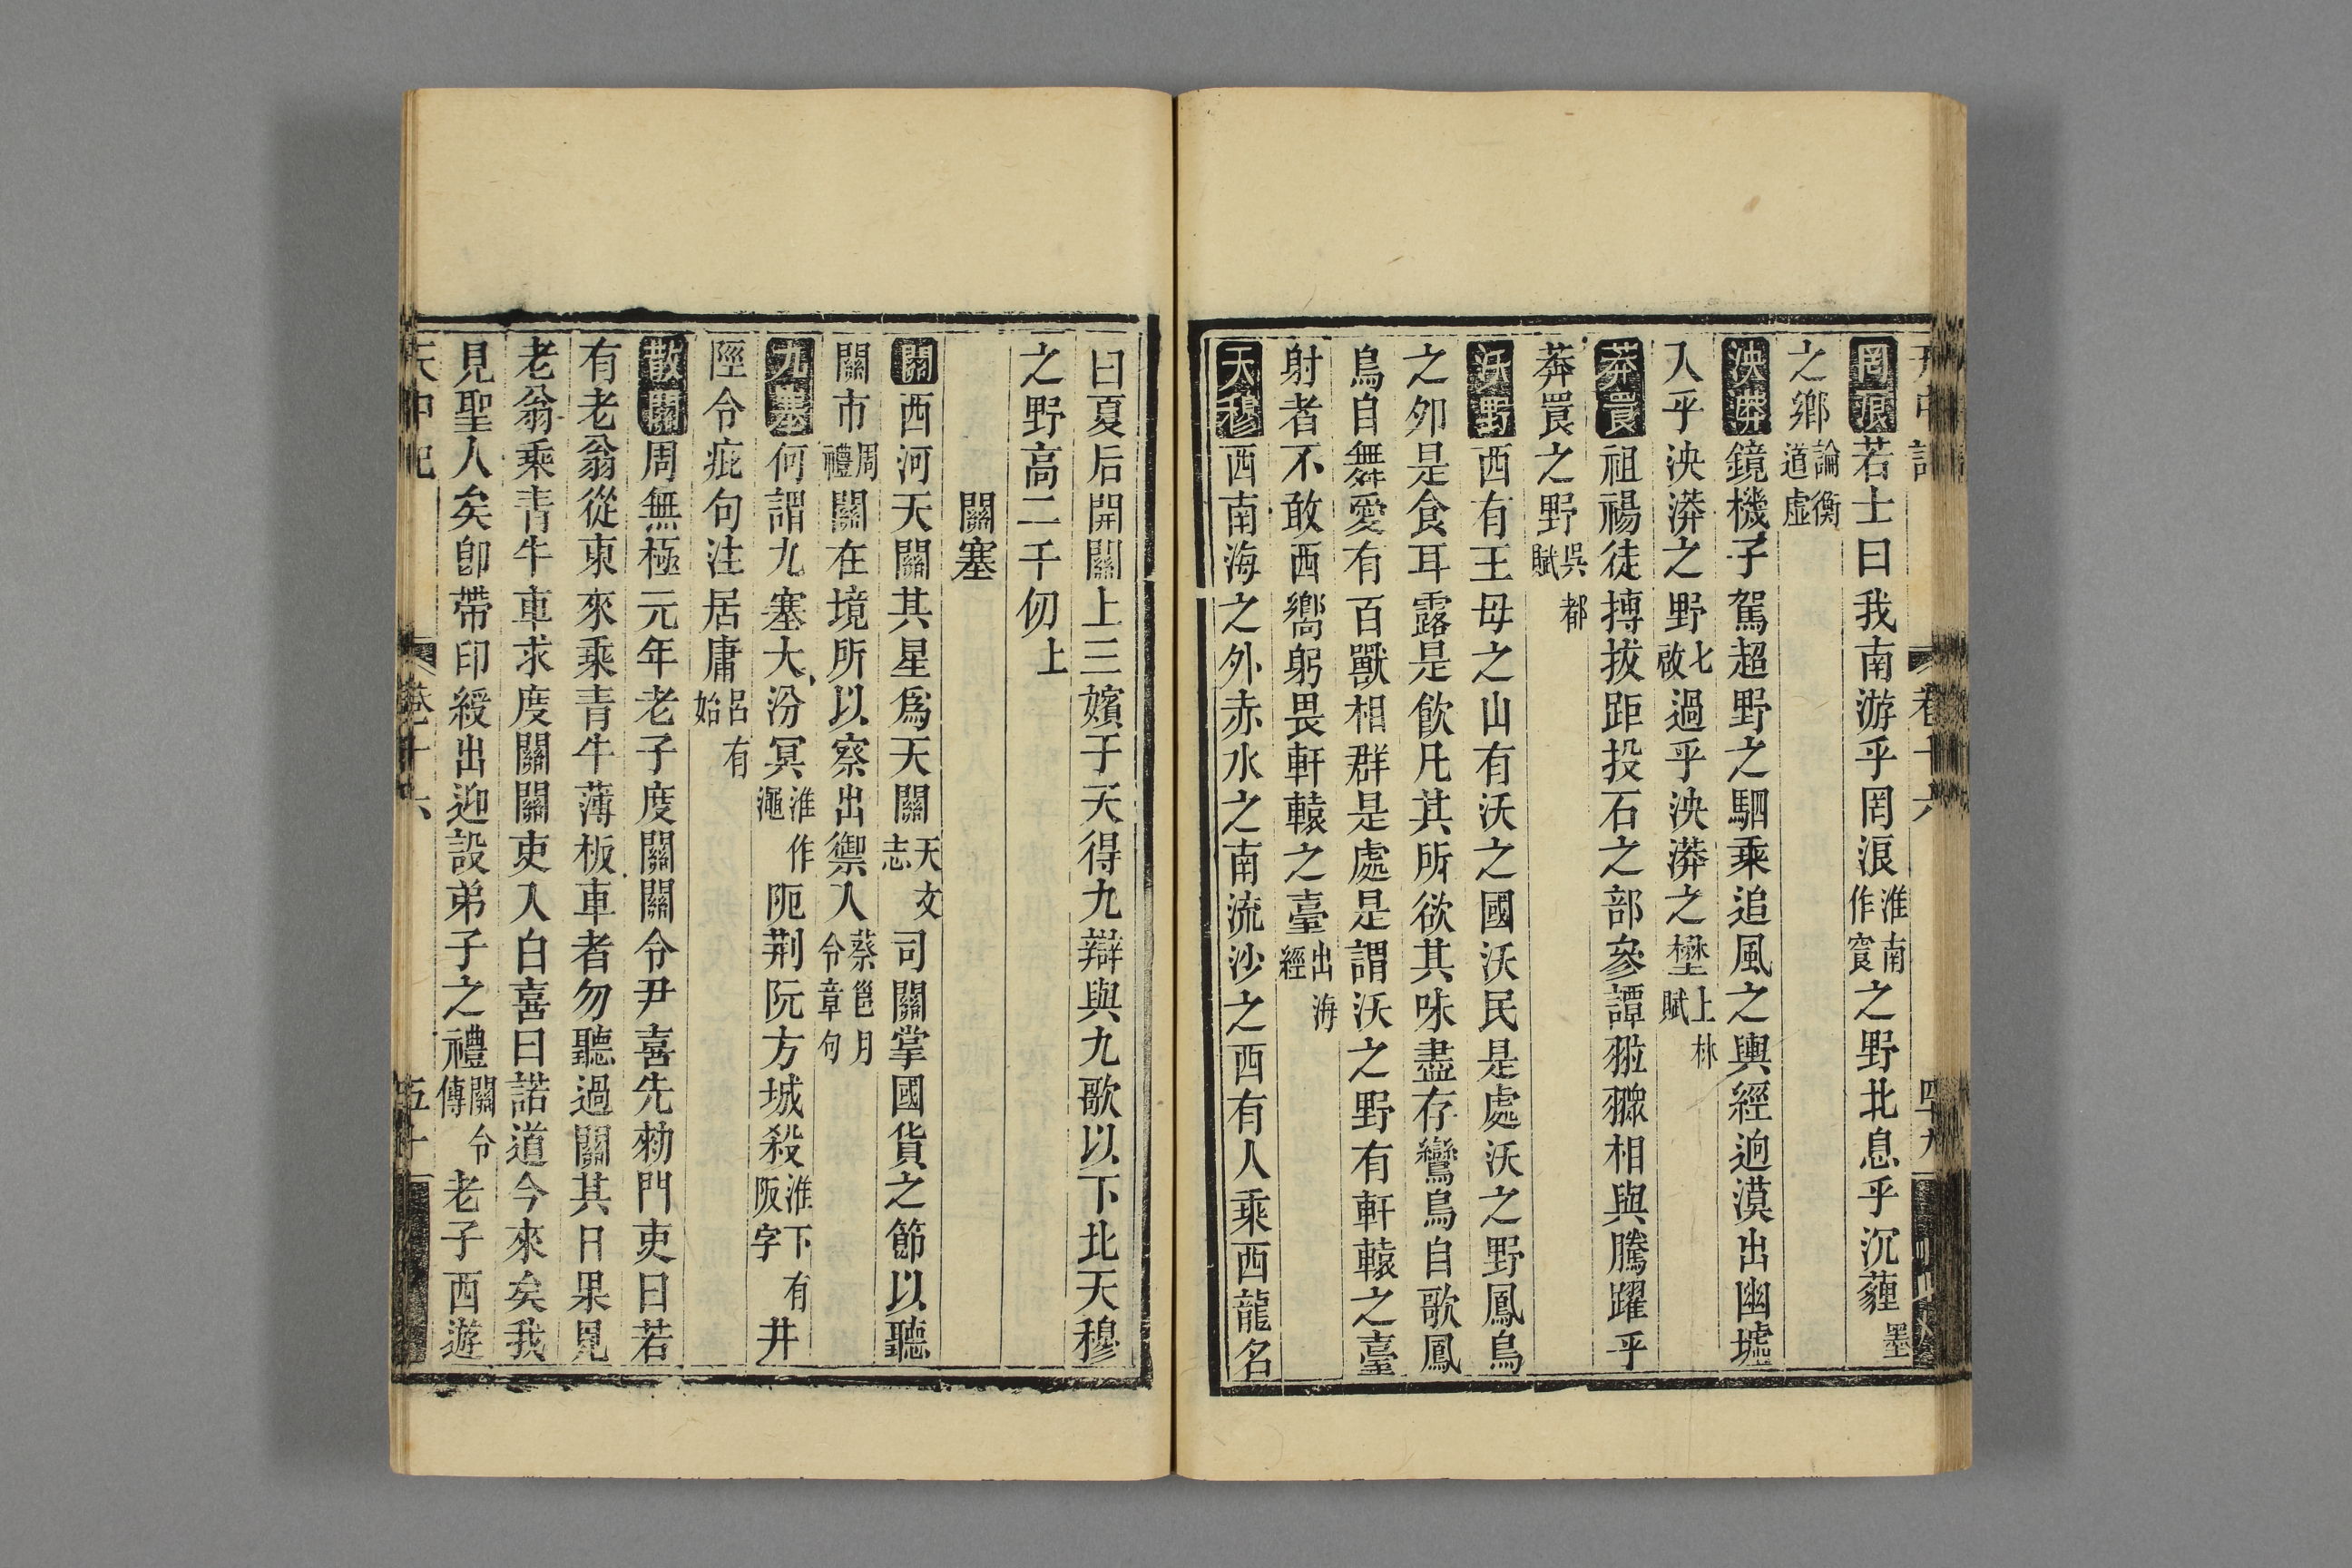 罔浪若士曰我南游乎罔浪淮南作㝗之野北息乎沉薶墨
之鄉論衡道虛
泱漭鏡機子駕超野之駟乘追風之輿經迥漠出幽墟
入乎泱漭之野七啟過乎泱漭之壄上林賦
莽罠祖裼徒搏拔距投石之部參譚翋𦒢相與騰躍乎
莽罠之野吳都賦
沃野西有王母之山有沃之國沃民是處沃之野鳳鳥
之夘是食耳露是飲凡其所欲其味盡存鸞鳥自歌鳳
鳥自舞愛有百獸相群是處是謂沃之野有軒轅之臺
射者不敢西嚮躬畏軒轅之臺出海經
天穆西南海之外赤水之南流沙之西有人乘西龍名
曰夏后開關上三嬪于天得九辯與九歌以下北天穆
之野高二千仞上
關塞
關西河天關其星爲天關天文志司關掌國貨之節以聽
關市周禮關在境所以察出禦入蔡邕月令章句
九塞何謂九塞大汾冥淮作澠阨荆阮方城殺淮下有阪字井
陘令疵句注居庸呂有始
散關周無極元年老子度關關令尹喜先勑門吏曰若
有老翁從東來乘青牛薄板車者勿聽過關其日果見
老翁乘青牛車求度關關吏入白喜曰諾道今來矣我
見聖人矣卽帶印綬出迎設弟子之禮關令傳老子西遊
天中記 卷十六 五十